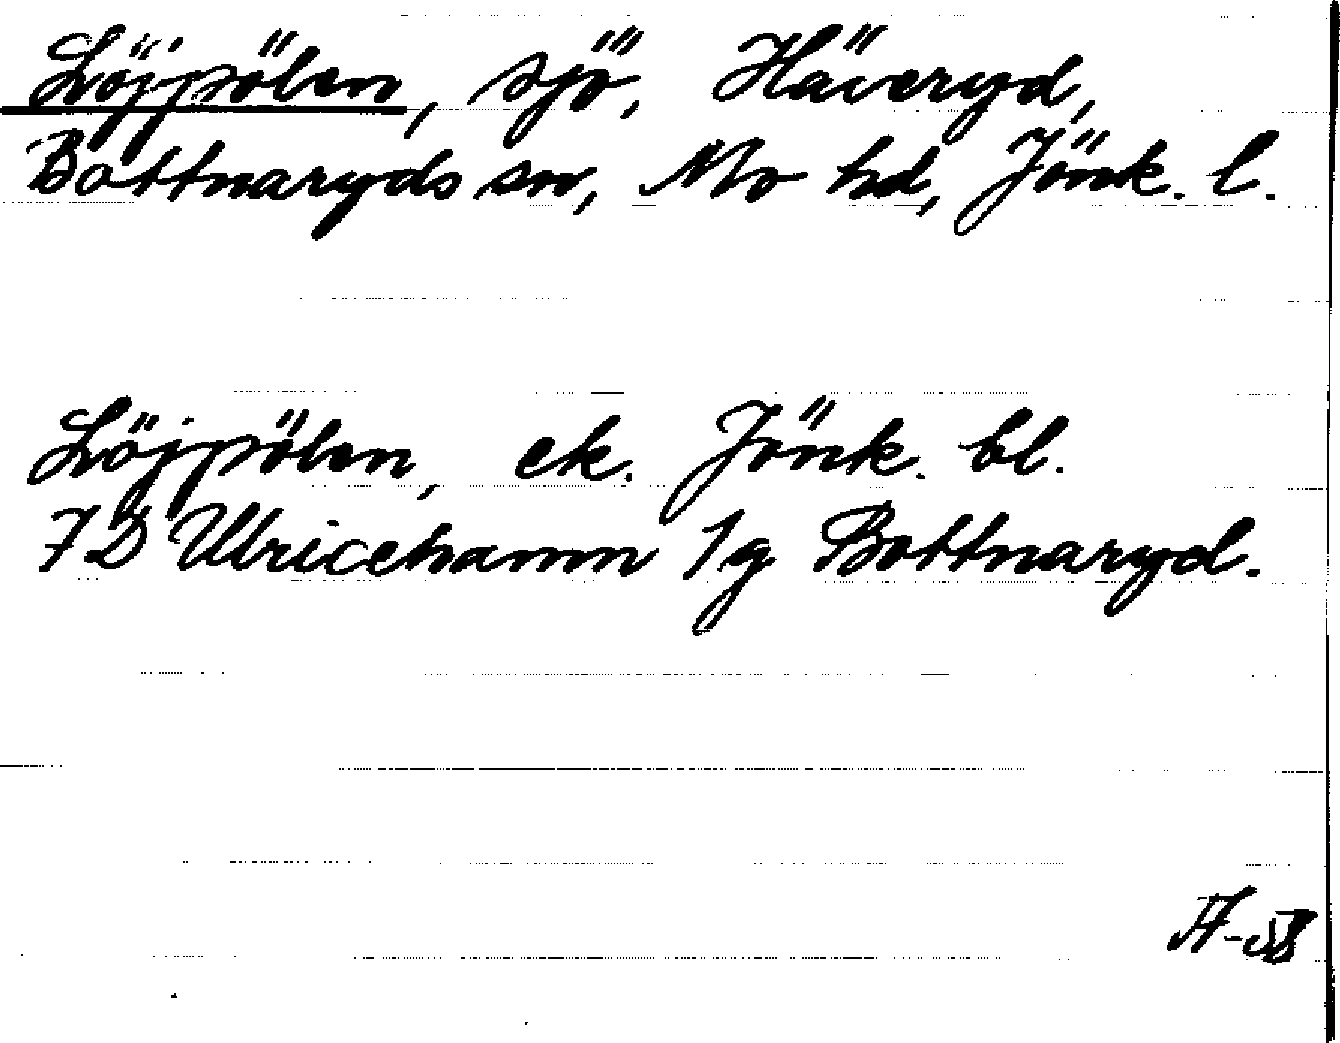 Löjpölen, sjö, Häveryd,
Bottnaryds sn, Mo hd, Jönk. l.
Löjpölen, ek. Jönk. bl.
7D Ulricehamn 1g Bottnaryd.